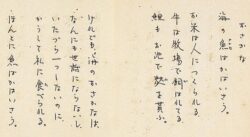 おさかな
海の魚はかはいさう。
お米は人につくられる、
牛は牧場で飼はれてる、
鯉もお池で麩を貰ふ。
けれども海のおさかなは、
なんにも世話にならないし、
いたづら一つしないのに、
かうして私に食べられる。
ほんとに魚はかはいさう。